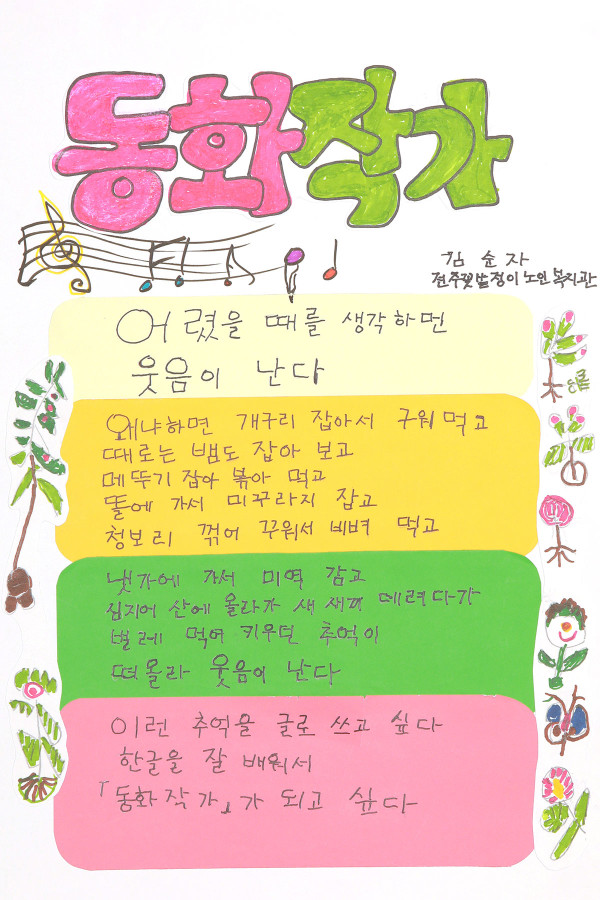 동화작가
김순자
전주꽃밭정이노인복지관
어렸을 때를 생각하면
웃음이 난다
왜냐하면 개구리 잡아서 구워먹고
때로는 뱀도 잡아 보고
메뚜기 잡아 볶아 먹고
똘에 가서 미꾸라지 잡고
청보리 꺾어 꾸워서 비벼 먹고
냇가에 가서 미역 감고
심지어 산에 올라가 새 새끼 데려다가
벌레 먹여 키우던 추억이
떠올라 웃음이 난다
이런 추억을 글로 쓰고 싶다
한글을 잘 배워서
「동화작가」가 되고 싶다